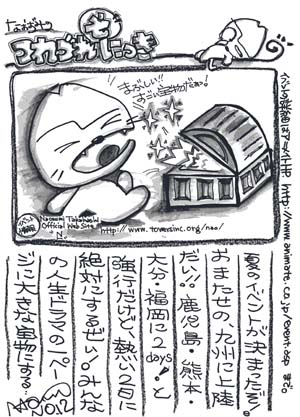 なおさんの
つれづれにっき
イベントの詳細はアニメイトまで http://www.animate.co.jp/event.asp
まぶしい!!
すごい宝物だなっ!
イベント情報
Naozumi Takahashi
Official Web Site
http://www.towersinc.org/nao/
夏のイベントが決まったぞ。
おまたせの、九州に上陸
だい!! 鹿児島・熊本・
大分・福岡に2days!と
強行だけど、熱い2日に
絶対にするぜい!みんな
の人生ドラマの一ペー
ジに大きな宝物にする…
NO.12